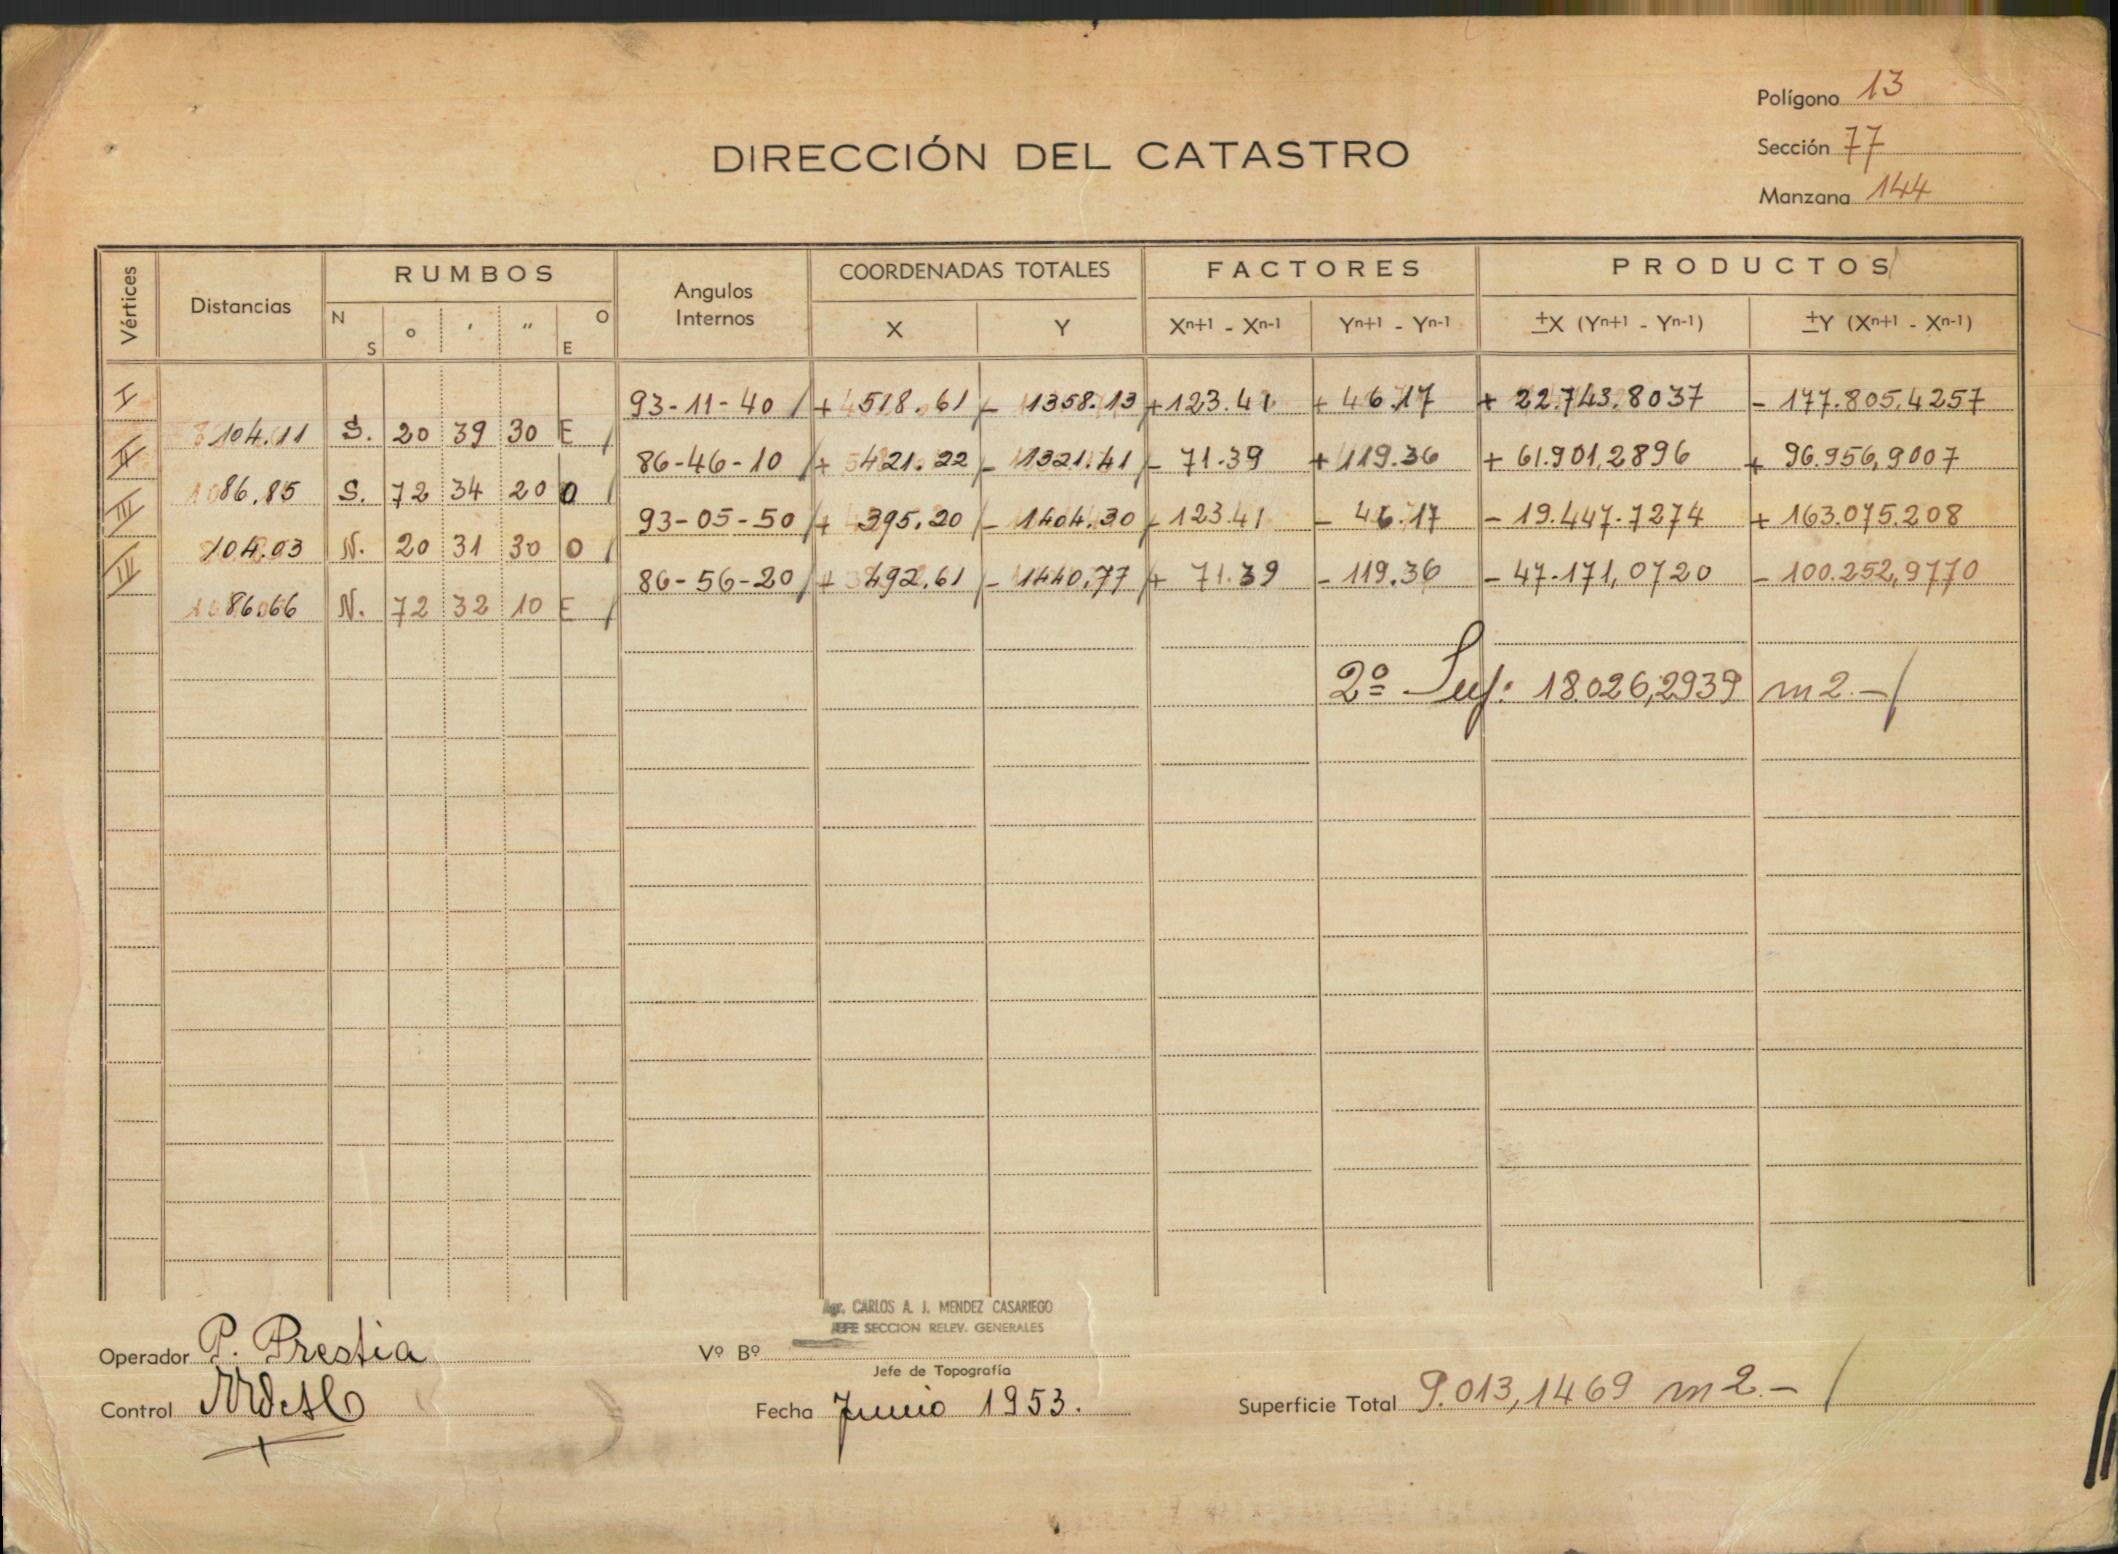 Polígono 13
DIRECCIÓN DEL CATASTRO
Sección 77
Manzana 144
Vértices Distancias RUMBOS Angulos Internos COORDENADAS TOTALES FACTORES PRODUCTOS
N S ° ' " O E X Y Xn+1 - Xn-1 Yn+1 - Yn-1 ±X (Yn+1 - Yn-1) ±Y (Xn+1 - Xn-1)
I 93-11-40 + 518.61 - 1358.13 + 123.41 + 46.17 + 22.743.8037 - 177.805.4257
104.11 S. 20 39 30 E
II 86-46-10 + 421.22 - 1321.41 - 71.39 + 119.36 + 61.901,2896 + 96.956,9007
86.85 S. 72 34 20 O
III 93-05-50 + 395.20 - 1404.30 - 123.41 - 46.17 - 19.447.7274 + 163.075.208
104.03 N. 20 31 30 O
IV 86-56-20 + 492.61 - 1440.77 + 71.39 - 119.36 - 47.171,0720 - 100.252,9770
86.66 N. 72 32 10 E
2º Sup: 18.026,2939 m2.-
Agr. CARLOS A. J. MENDEZ CASARIEGO
JEFE SECCION RELEV. GENERALES
Operador P. Prestia
Vº Bº
Jefe de Topografía
Control
Fecha Junio 1953.
Superficie Total 9.013,1469 m2.-